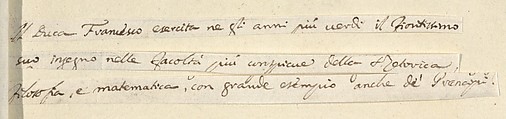 Il Duca Francesco esercita ne gli anni più verdi il fioritissimo
suo ingegno nelle facoltà più cospicue della Retorica,
filosofia, e matematica, con grande esempio anche de' Prencipi.